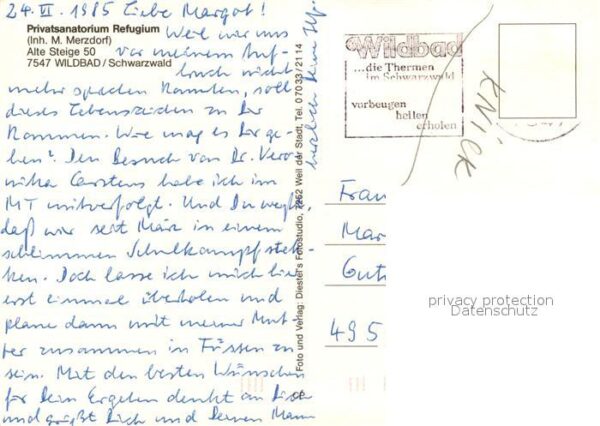 24. VI. 1985 Liebe Margot!
Privatsanatorium Refugium
(Inh. M. Merzdorf)
Alte Steige 50
7547 WILDBAD / Schwarzwald
Weil wir uns
vor meinem Auf-
bruch nicht
mehr sprechen konnten, soll
dieses Lebenszeichen zu Dir
kommen. Wie mag es Dir ge-
hen? Den Besuch von Dr. Vero-
nika Carstens habe ich im
MT mitverfolgt. Und Du weißt,
daß wir seit März in einem
schlimmen Schulkampf stek-
ken. Doch lasse ich mich hier
erst einmal überholen und
plane dann mit meiner Mut-
ter zusammen in Füssen zu
sein. Mit den besten Wünschen
für Dein Ergehen denkt an Dich
und grüßt Dich und Deinen Mann
herzlich Deine
Foto und Verlag: Diestel's Fotostudio, 7252 Weil der Stadt, Tel. 07033/2114
Wildbad
...die Thermen
im Schwarzwald
vorbeugen
heilen
erholen
KNICK
Frau
Mar
Gut
495
privacy protection
Datenschutz